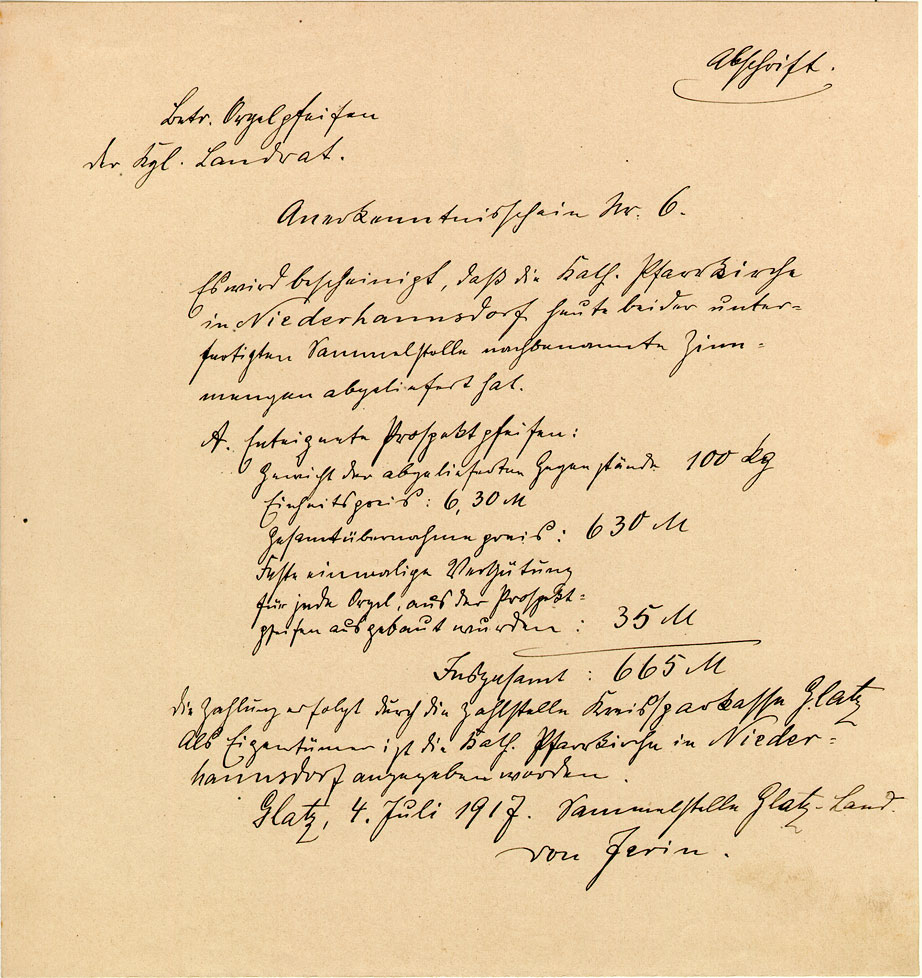 Abschrift.
Betr. Orgelpfeifen
der Kgl. Landrat.
Anerkenntnisschein Nr. 6.
Es wird bescheinigt, daß die Kath. Pfarrkirche
in Niederhannsdorf heute bei der unter-
fertigten Sammelstelle nachbenannte Zinn-
mengen abgeliefert hat.
A. Enteignete Prospektpfeifen:
Gewicht der abgelieferten Gegenstände 100 kg
Einheitspreis: 6,30 M
Gesamtübernahmepreis: 630 M
Feste einmalige Vergütung
für jede Orgel, aus der Prospekt-
pfeifen ausgebaut wurden: 35 M
Insgesamt: 665 M
Die Zahlung erfolgt durch die Zahlstelle Kreissparkasse Glatz
Als Eigentümer ist die Kath. Pfarrkirche in Nieder-
hannsdorf angegeben worden.
Glatz, 4. Juli 1917. Sammelstelle Glatz-Land.
von Jerin.